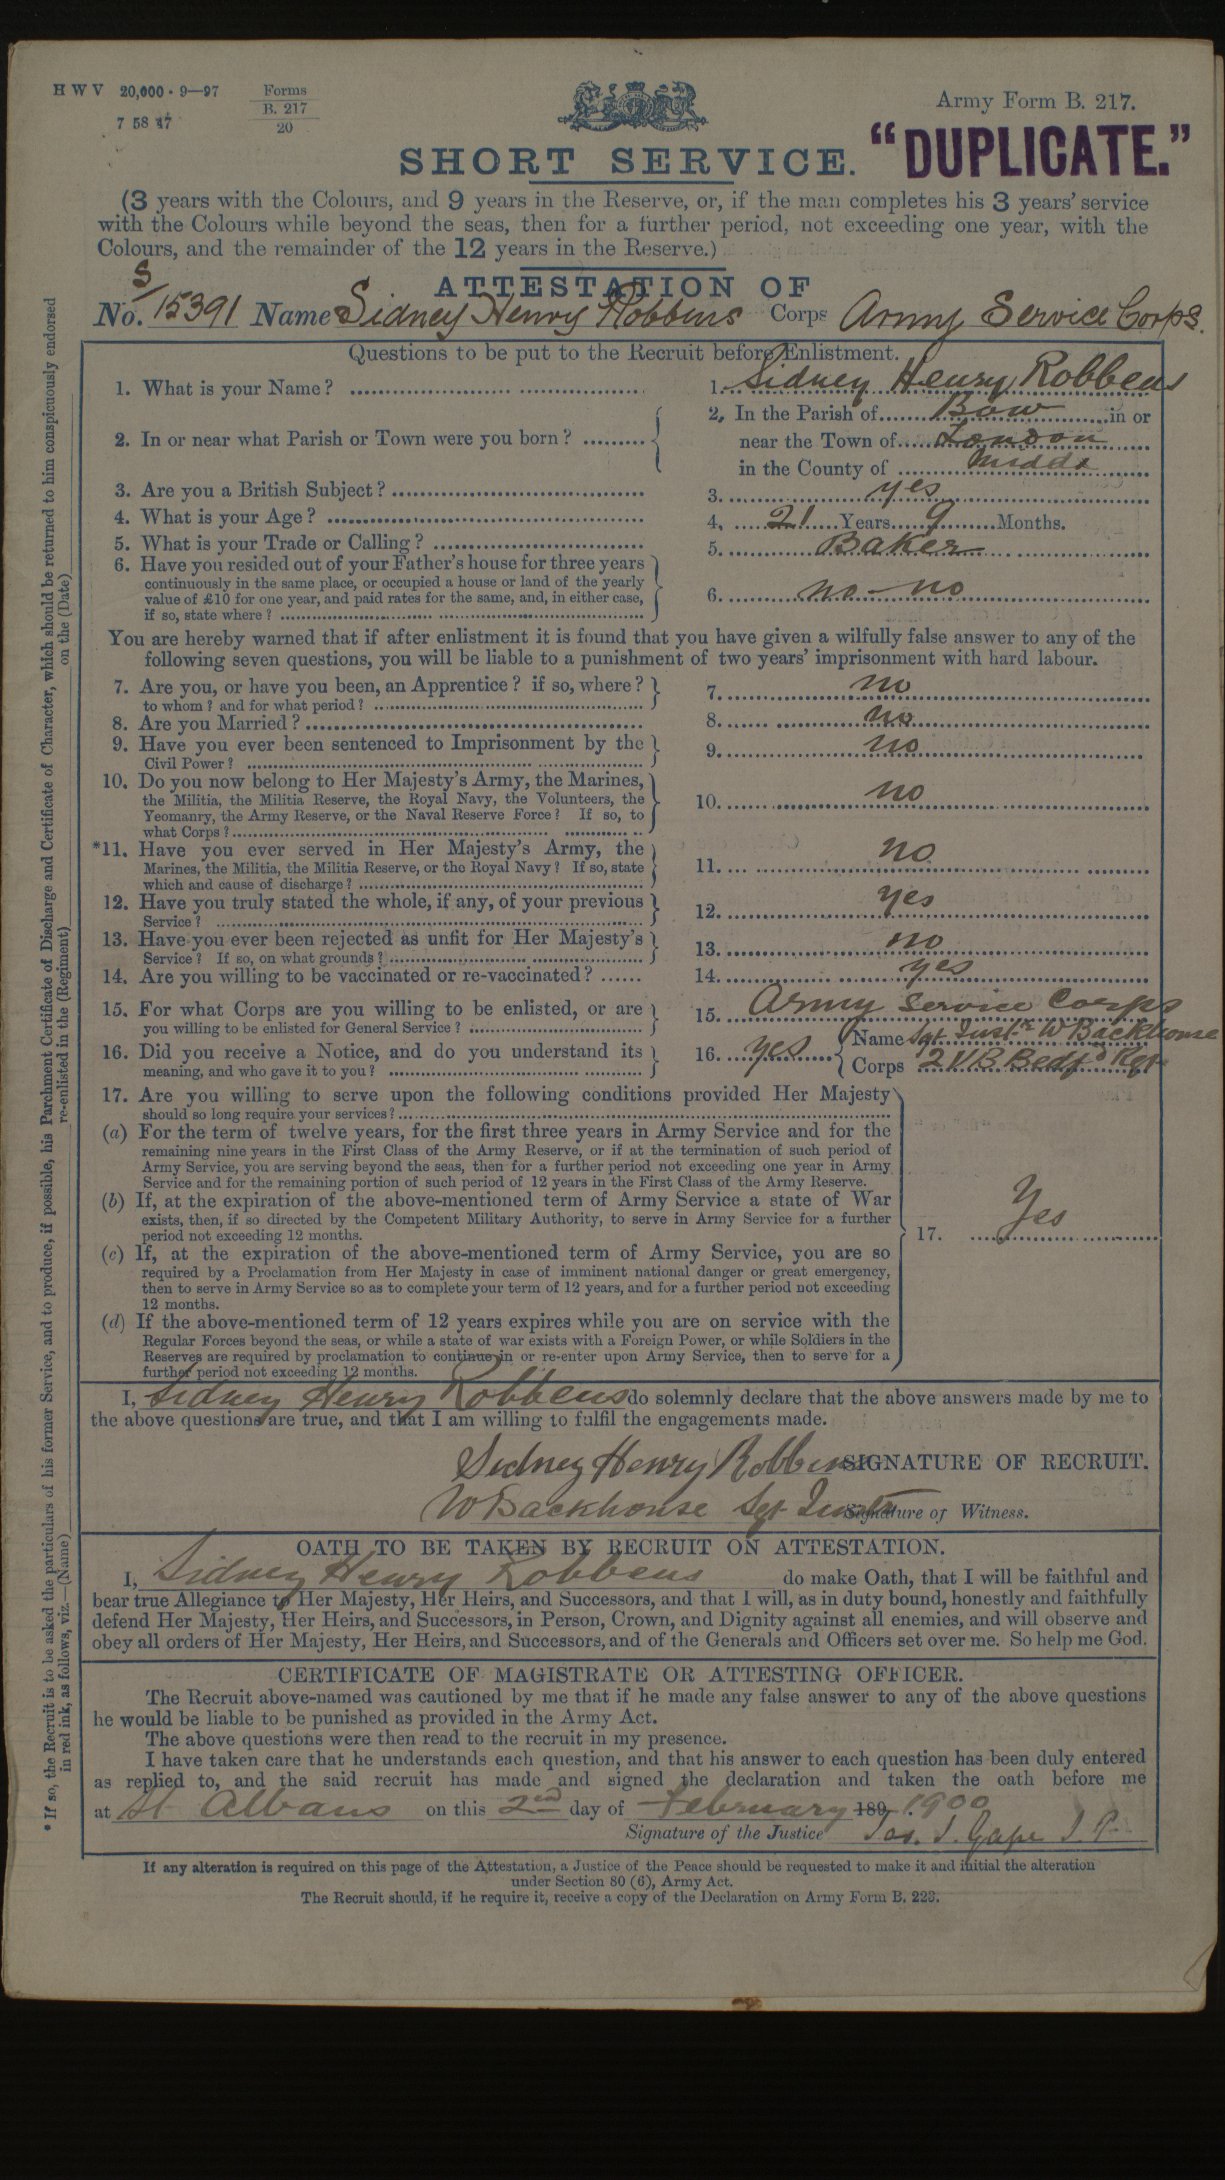 H W V 20,000 · 9—97 Forms B. 217 20
7 58 47
Army Form B. 217.
"DUPLICATE."
SHORT SERVICE.
(3 years with the Colours, and 9 years in the Reserve, or, if the man completes his 3 years' service
with the Colours while beyond the seas, then for a further period, not exceeding one year, with the
Colours, and the remainder of the 12 years in the Reserve.)
ATTESTATION OF
No. S/15391 Name Sidney Henry Robbens Corps Army Service Corps.
Questions to be put to the Recruit before Enlistment.
1. What is your Name? 1. Sidney Henry Robbens
2. In or near what Parish or Town were you born? 2. In the Parish of Bow in or
near the Town of London
in the County of Middx
3. Are you a British Subject? 3. yes
4. What is your Age? 4. 21 Years 9 Months.
5. What is your Trade or Calling? 5. Baker
6. Have you resided out of your Father's house for three years
continuously in the same place, or occupied a house or land of the yearly
value of £10 for one year, and paid rates for the same, and, in either case,
if so, state where? 6. no – no
You are hereby warned that if after enlistment it is found that you have given a wilfully false answer to any of the
following seven questions, you will be liable to a punishment of two years' imprisonment with hard labour.
7. Are you, or have you been, an Apprentice? if so, where?
to whom? and for what period? 7. no
8. Are you Married? 8. no
9. Have you ever been sentenced to Imprisonment by the
Civil Power? 9. no
10. Do you now belong to Her Majesty's Army, the Marines,
the Militia, the Militia Reserve, the Royal Navy, the Volunteers, the
Yeomanry, the Army Reserve, or the Naval Reserve Force? If so, to
what Corps? 10. no
*11. Have you ever served in Her Majesty's Army, the
Marines, the Militia, the Militia Reserve, or the Royal Navy? If so, state
which and cause of discharge? 11. no
12. Have you truly stated the whole, if any, of your previous
Service? 12. yes
13. Have you ever been rejected as unfit for Her Majesty's
Service? If so, on what grounds? 13. no
14. Are you willing to be vaccinated or re-vaccinated? 14. yes
15. For what Corps are you willing to be enlisted, or are
you willing to be enlisted for General Service? 15. Army Service Corps
16. Did you receive a Notice, and do you understand its
meaning, and who gave it to you? 16. yes Name Sgt Instr W Backhouse
Corps 2 VB Bedfd Regt
17. Are you willing to serve upon the following conditions provided Her Majesty
should so long require your services?
(a) For the term of twelve years, for the first three years in Army Service and for the
remaining nine years in the First Class of the Army Reserve, or if at the termination of such period of
Army Service, you are serving beyond the seas, then for a further period not exceeding one year in Army
Service and for the remaining portion of such period of 12 years in the First Class of the Army Reserve.
(b) If, at the expiration of the above-mentioned term of Army Service a state of War
exists, then, if so directed by the Competent Military Authority, to serve in Army Service for a further
period not exceeding 12 months.
17. Yes
(c) If, at the expiration of the above-mentioned term of Army Service, you are so
required by a Proclamation from Her Majesty in case of imminent national danger or great emergency,
then to serve in Army Service so as to complete your term of 12 years, and for a further period not exceeding
12 months.
(d) If the above-mentioned term of 12 years expires while you are on service with the
Regular Forces beyond the seas, or while a state of war exists with a Foreign Power, or while Soldiers in the
Reserves are required by proclamation to continue in or re-enter upon Army Service, then to serve for a
further period not exceeding 12 months.
I, Sidney Henry Robbens do solemnly declare that the above answers made by me to
the above questions are true, and that I am willing to fulfil the engagements made.
Sidney Henry Robbens SIGNATURE OF RECRUIT.
W Backhouse Sgt Instr Signature of Witness.
OATH TO BE TAKEN BY RECRUIT ON ATTESTATION.
I, Sidney Henry Robbens do make Oath, that I will be faithful and
bear true Allegiance to Her Majesty, Her Heirs, and Successors, and that I will, as in duty bound, honestly and faithfully
defend Her Majesty, Her Heirs, and Successors, in Person, Crown, and Dignity against all enemies, and will observe and
obey all orders of Her Majesty, Her Heirs, and Successors, and of the Generals and Officers set over me. So help me God.
CERTIFICATE OF MAGISTRATE OR ATTESTING OFFICER.
The Recruit above-named was cautioned by me that if he made any false answer to any of the above questions
he would be liable to be punished as provided in the Army Act.
The above questions were then read to the recruit in my presence.
I have taken care that he understands each question, and that his answer to each question has been duly entered
as replied to, and the said recruit has made and signed the declaration and taken the oath before me
at St Albans on this 2nd day of February 189 1900
Signature of the Justice Jas. J. Gape J. P.
If any alteration is required on this page of the Attestation, a Justice of the Peace should be requested to make it and initial the alteration
under Section 80 (6), Army Act.
The Recruit should, if he require it, receive a copy of the Declaration on Army Form B. 223.
* If so, the Recruit is to be asked the particulars of his former Service, and to produce, if possible, his Parchment Certificate of Discharge and Certificate of Character, which should be returned to him conspicuously endorsed
in red ink, as follows, viz.—(Name) re-enlisted in the (Regiment) on the (Date)